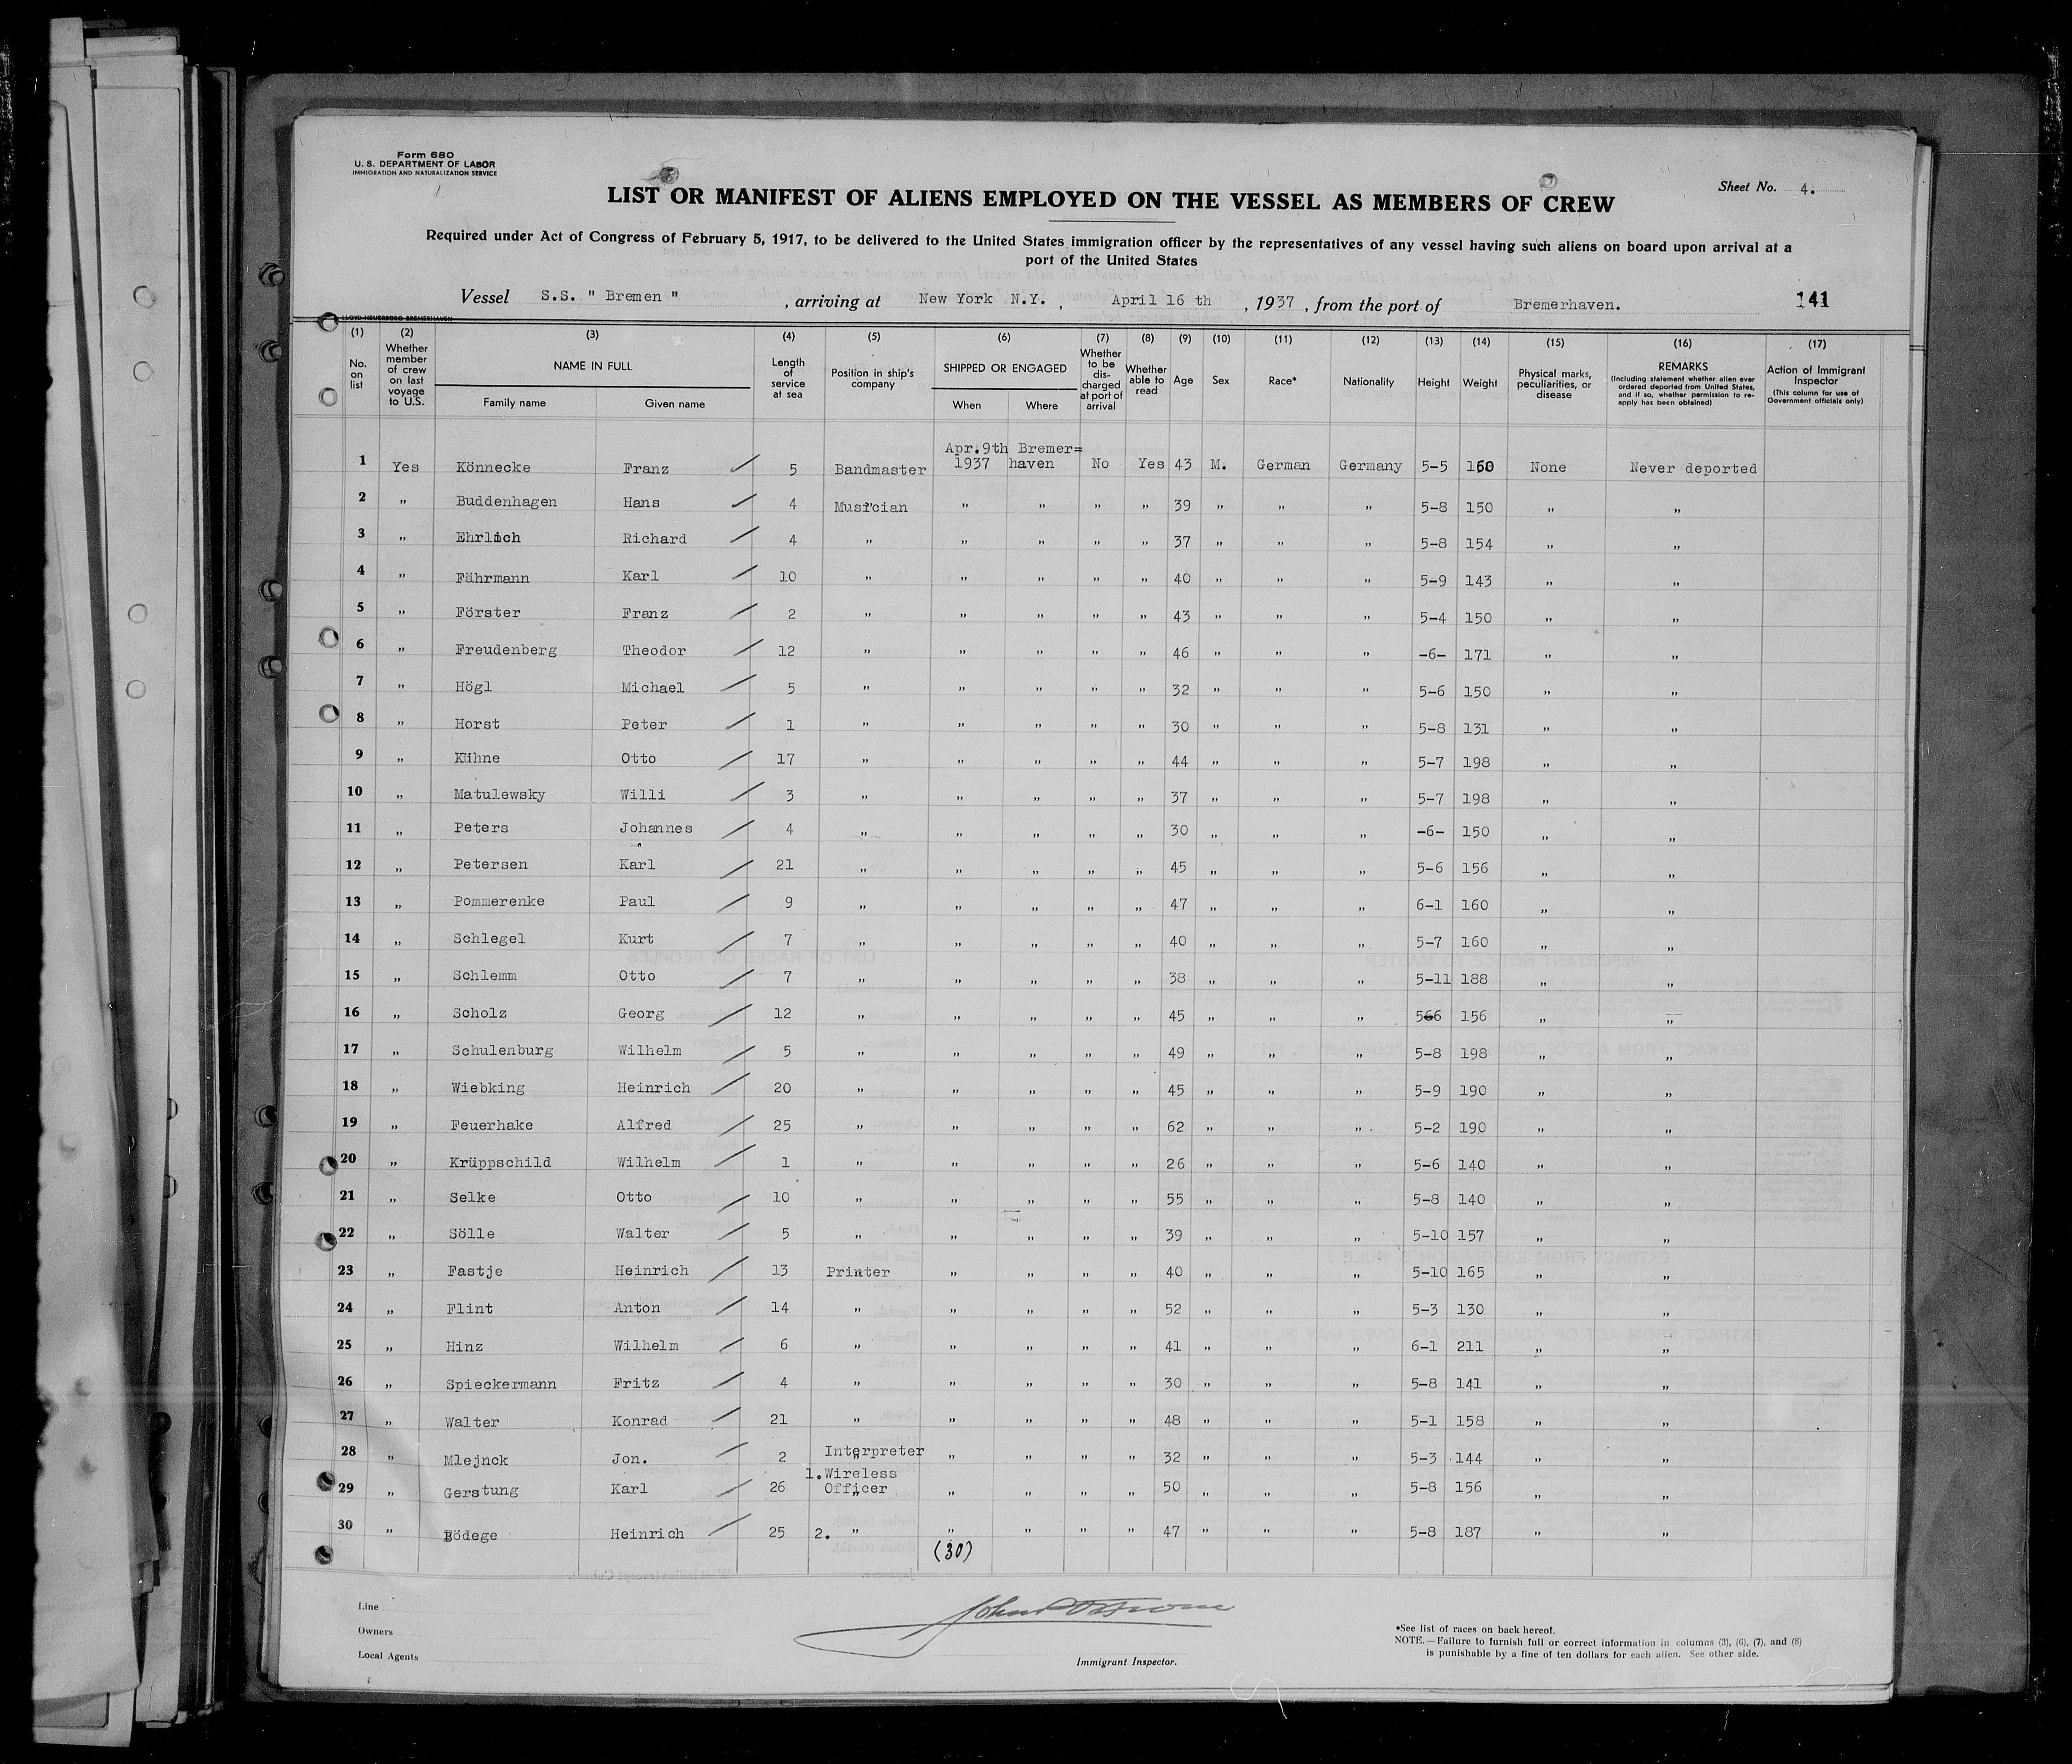 Form 680
U. S. DEPARTMENT OF LABOR
IMMIGRATION AND NATURALIZATION SERVICE
Sheet No. 4.
LIST OR MANIFEST OF ALIENS EMPLOYED ON THE VESSEL AS MEMBERS OF CREW
Required under Act of Congress of February 5, 1917, to be delivered to the United States immigration officer by the representatives of any vessel having such aliens on board upon arrival at a
port of the United States
Vessel S.S. " Bremen " , arriving at New York N.Y. , April 16 th , 1937 , from the port of Bremerhaven. 141
(1) No. on list (2) Whether member of crew on last voyage to U.S. (3) NAME IN FULL Family name Given name (4) Length of service at sea (5) Position in ship's company (6) SHIPPED OR ENGAGED When Where (7) Whether to be discharged at port of arrival (8) Whether able to read (9) Age (10) Sex (11) Race* (12) Nationality (13) Height (14) Weight (15) Physical marks, peculiarities, or disease (16) REMARKS (Including statement whether alien ever ordered deported from United States, and if so, whether permission to reapply has been obtained) (17) Action of Immigrant Inspector (This column for use of Government officials only)
1 Yes Könnecke Franz 5 Bandmaster Apr.9th 1937 Bremer=haven No Yes 43 M. German Germany 5-5 160 None Never deported
2 " Buddenhagen Hans 4 Musician " " " " 39 " " " 5-8 150 " "
3 " Ehrlich Richard 4 " " " " " 37 " " " 5-8 154 " "
4 " Fährmann Karl 10 " " " " " 40 " " " 5-9 143 " "
5 " Förster Franz 2 " " " " " 43 " " " 5-4 150 " "
6 " Freudenberg Theodor 12 " " " " " 46 " " " -6- 171 " "
7 " Högl Michael 5 " " " " " 32 " " " 5-6 150 " "
8 " Horst Peter 1 " " " " " 30 " " " 5-8 131 " "
9 " Kühne Otto 17 " " " " " 44 " " " 5-7 198 " "
10 " Matulewsky Willi 3 " " " " " 37 " " " 5-7 198 " "
11 " Peters Johannes 4 " " " " " 30 " " " -6- 150 " "
12 " Petersen Karl 21 " " " " " 45 " " " 5-6 156 " "
13 " Pommerenke Paul 9 " " " " " 47 " " " 6-1 160 " "
14 " Schlegel Kurt 7 " " " " " 40 " " " 5-7 160 " "
15 " Schlemm Otto 7 " " " " " 38 " " " 5-11 188 " "
16 " Scholz Georg 12 " " " " " 45 " " " 566 156 " "
17 " Schulenburg Wilhelm 5 " " " " " 49 " " " 5-8 198 " "
18 " Wiebking Heinrich 20 " " " " " 45 " " " 5-9 190 " "
19 " Feuerhake Alfred 25 " " " " " 62 " " " 5-2 190 " "
20 " Krüppschild Wilhelm 1 " " " " " 26 " " " 5-6 140 " "
21 " Selke Otto 10 " " " " " 55 " " " 5-8 140 " "
22 " Sölle Walter 5 " " " " " 39 " " " 5-10 157 " "
23 " Fastje Heinrich 13 Printer " " " " 40 " " " 5-10 165 " "
24 " Flint Anton 14 " " " " " 52 " " " 5-3 130 " "
25 " Hinz Wilhelm 6 " " " " " 41 " " " 6-1 211 " "
26 " Spieckermann Fritz 4 " " " " " 30 " " " 5-8 141 " "
27 " Walter Konrad 21 " " " " " 48 " " " 5-1 158 " "
28 " Mlejnck Jon. 2 Interpreter " " " " 32 " " " 5-3 144 " "
29 " Gerstung Karl 26 1. Wireless Officer " " " " 50 " " " 5-8 156 " "
30 " Bödege Heinrich 25 2. " " " " " 47 " " " 5-8 187 " "
(30)
Line
Owners
Local Agents
Immigrant Inspector.
*See list of races on back hereof.
NOTE.—Failure to furnish full or correct information in columns (3), (6), (7), and (8)
is punishable by a fine of ten dollars for each alien. See other side.